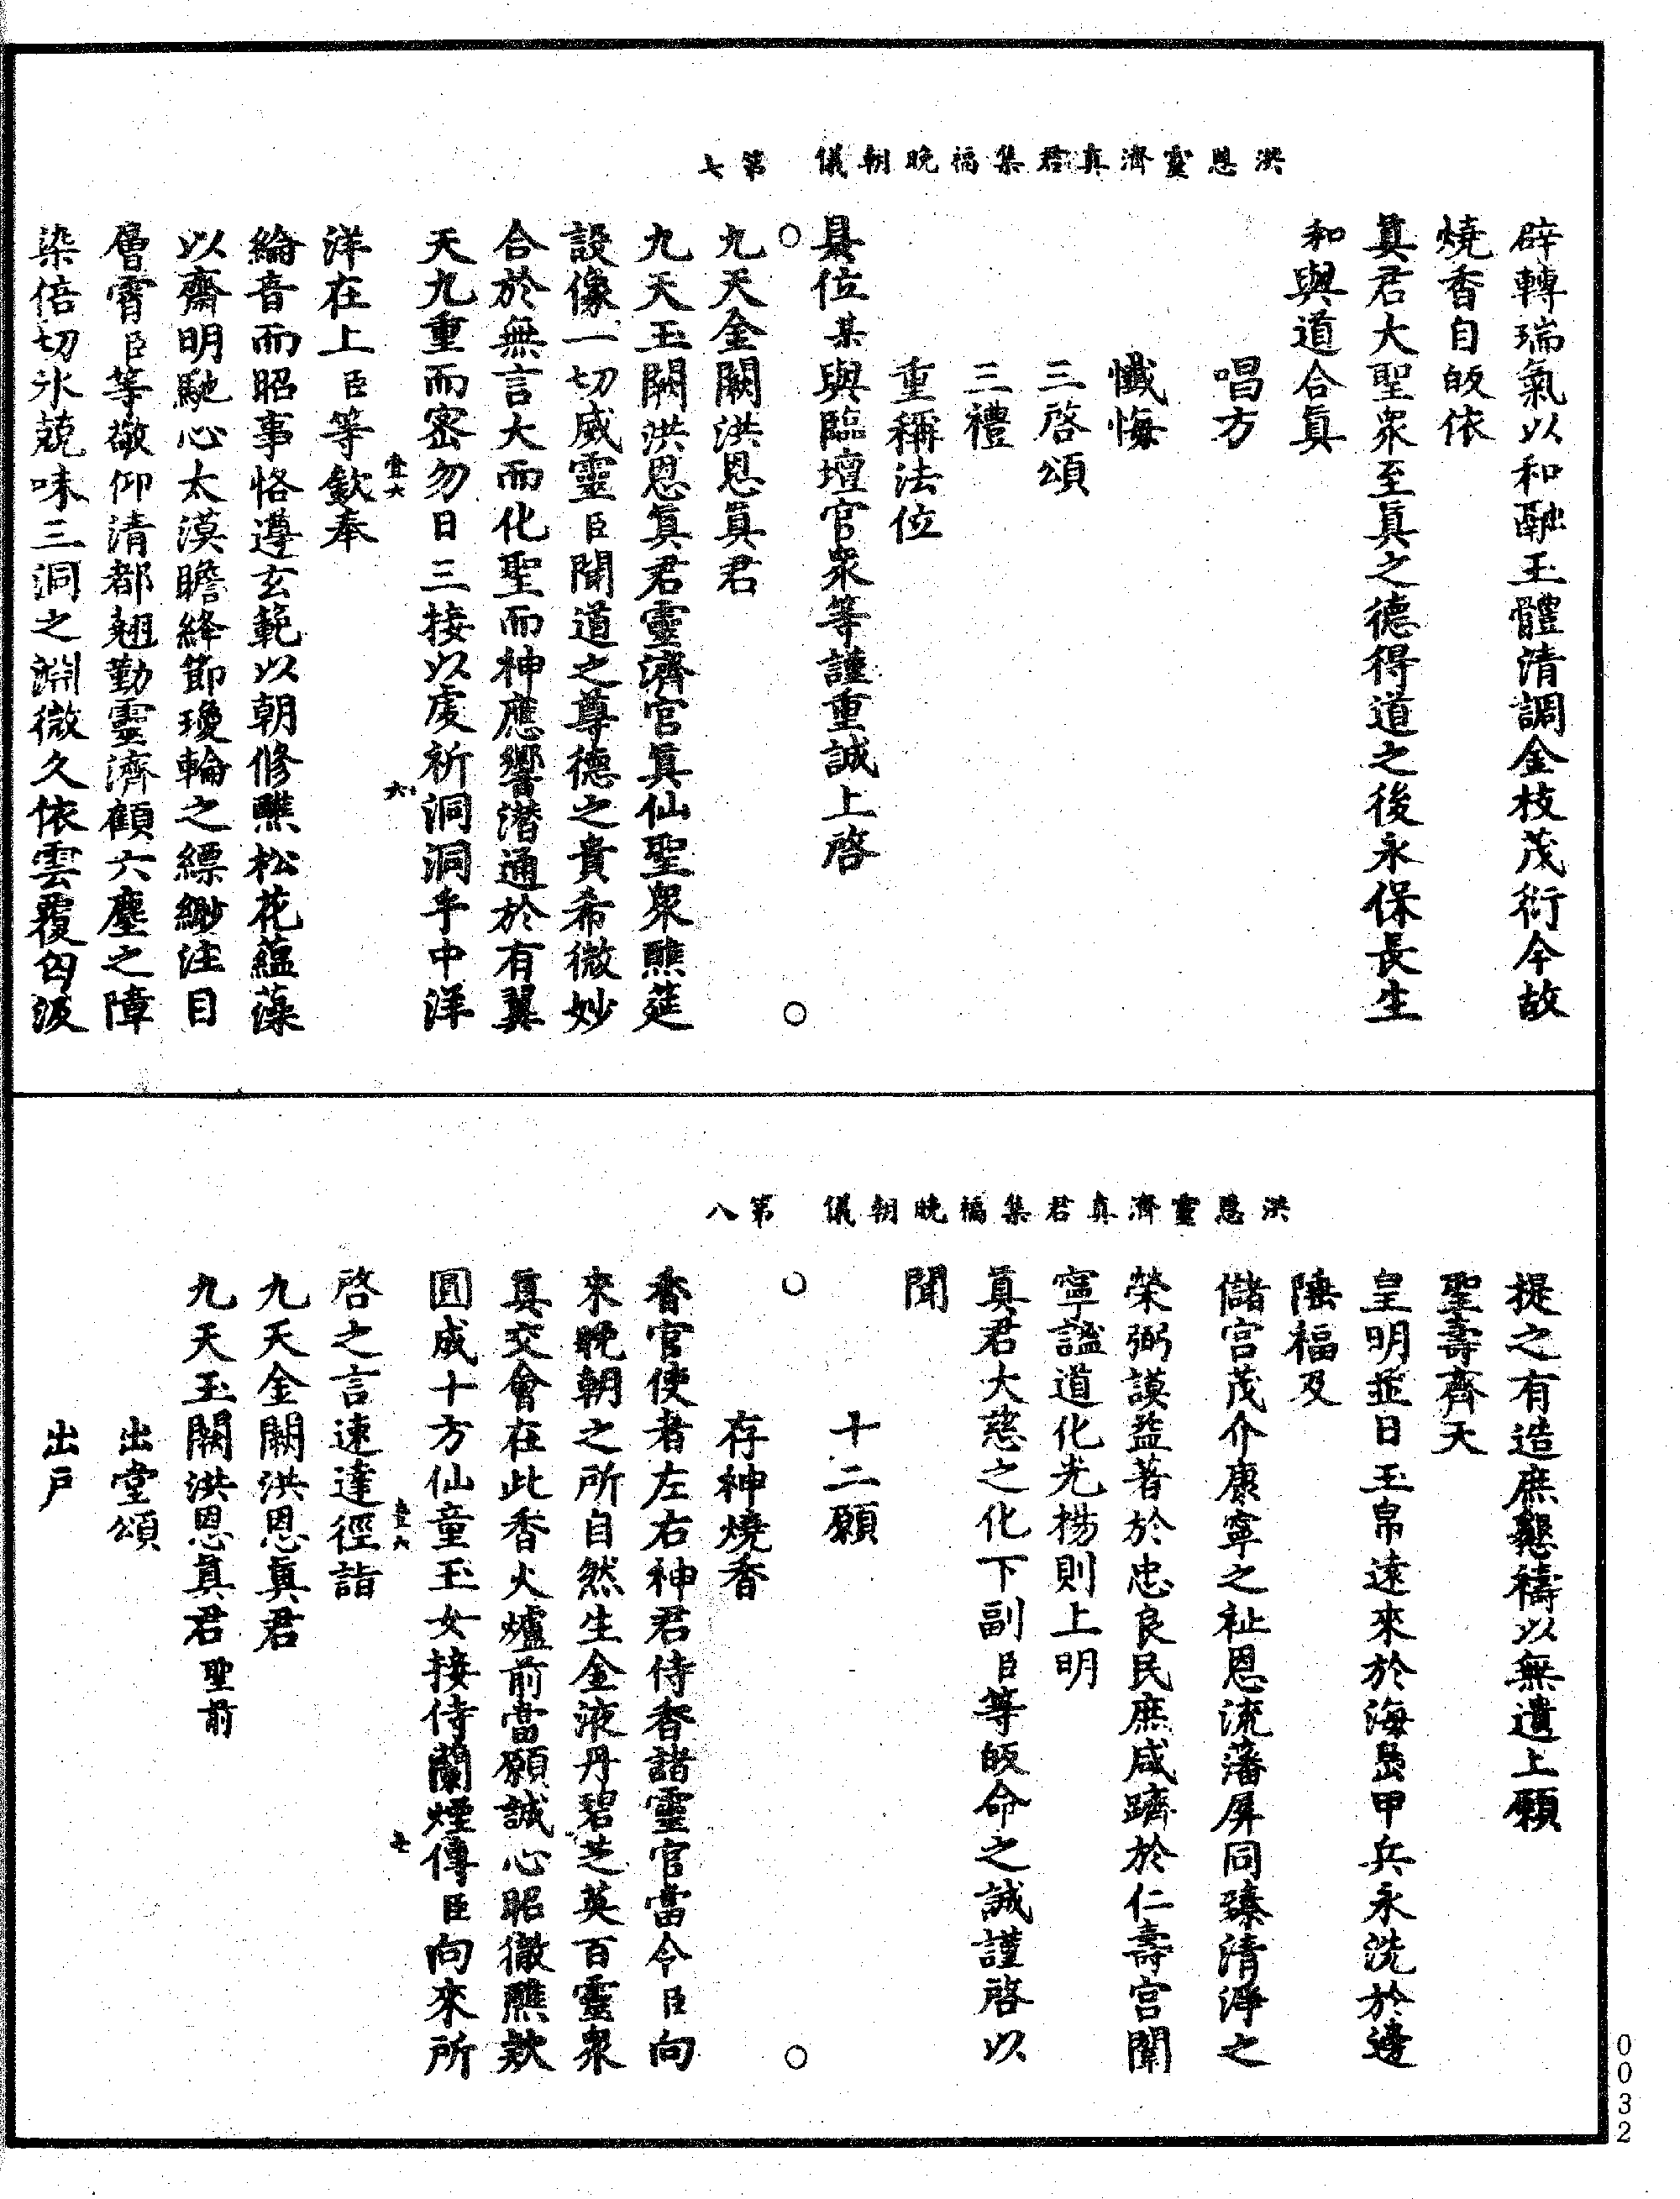 洪恩靈濟真君集福晚朝儀　第七
辟轉瑞氣以和融玉體清調金枝茂衍今故
燒香自皈依
眞君大聖衆至眞之德得道之後永保長生
和與道合眞
唱方
懺悔
三啓頌
三禮
重稱法位
具位某與臨壇官衆等謹重誠上啓
九天金闕洪恩眞君
九天玉闕洪恩眞君靈濟官眞仙聖衆醮筵
設像一切威靈臣聞道之尊德之貴希微妙
合於無言大而化聖而神應響潛通於有翼
天九重而密勿日三接以虔祈洞洞乎中洋
壹六　六
洋在上臣等欽奉
綸音而昭事恪遵玄範以朝修醮松花蘊藻
以齋明馳心太漠瞻絳節瓊輪之縹緲注目
層霄臣等敬仰清都翹勤靈濟顧六塵之障
染倍切氷兢味三洞之淵微久依雲覆匄汲
洪恩靈濟真君集福晚朝儀　第八
提之有造庶懇禱以無遺上願
聖壽齊天
皇明並日玉帛遠來於海島甲兵永洗於邊
陲福及
儲宮茂介康寧之祉恩流藩屏同臻清淨之
榮弼謨益著於忠良民庶咸躋於仁壽宮闈
寧謐道化光揚則上明
眞君大慈之化下副臣等皈命之誠謹啓以
聞
十二願
存神燒香
香官使者左右神君侍香諸靈官當令臣向
來晚朝之所自然生金液丹碧芝英百靈衆
眞交會在此香火爐前當願誠心昭徹醮欵
圓成十方仙童玉女接侍蘭煙傳臣向來所
壹六　七
啓之言速達徑詣
九天金闕洪恩眞君
九天玉闕洪恩眞君聖前
出堂頌
出戶
0032